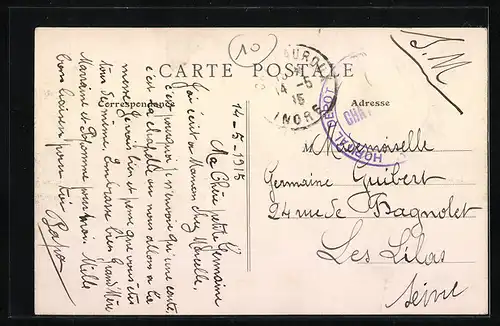 10
F.M
CARTE POSTALE
Correspondance
Adresse
14-5
15
INDRE
HOPITAL DEPOT
CHA
14-5-1915
Ma Chère petite Germaine
J'ai écrit à Maman chez Mireille,
c'est pourquoi je n'envoie qu'une carte,
c'est la chapelle où nous allons à la
messe, je vais bien et pense que vous êtes
tous de même, Embrasse bien Grand Mère
Maman et Etienne pour moi Mille
bons baisers pour toi
Papa
Mademoiselle
Germaine Guibert
24 rue de Bagnolet
Les Lilas
Seine